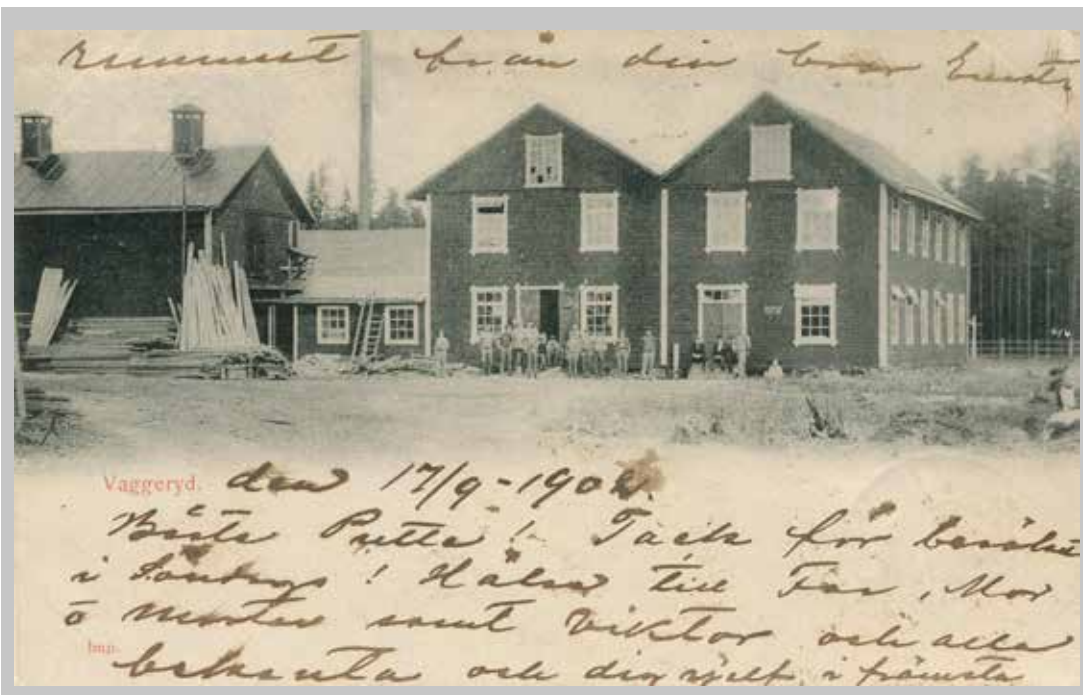 rummet från din bror
Vaggeryd. den 17/9-1902.
Bäste Putte! Tack för besöket
i Söndags! Hälsa till Far, Mor
o Moster samt Viktor och alla
Imp.
bekanta och dig sjelf, i främsta